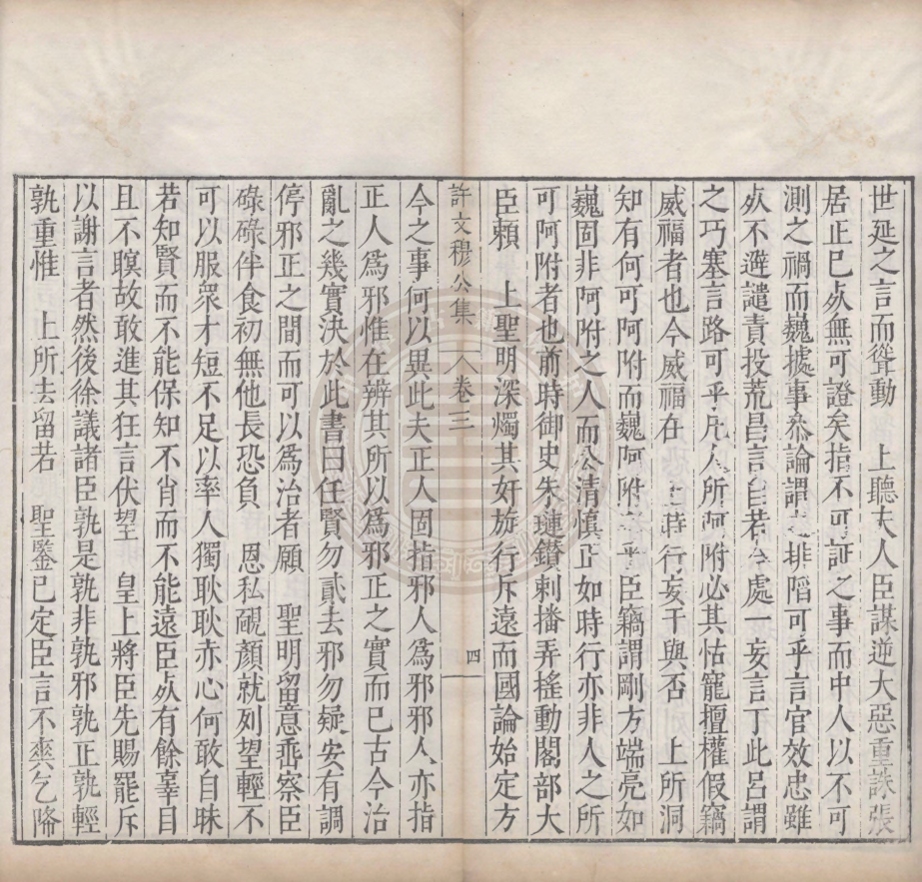 世延之言而聳動　上聽夫人臣謀逆大惡重誅張
居正已死無可證矣指不可証之事而中人以不可
測之禍而巍據事叅論謂之排陷可乎言官效忠雖
死不避譴責投荒昌言自若今處一妄言丁此呂謂
之巧塞言路可乎凡人所阿附必其怙寵擅權假竊
威福者也今威福在　上時行妄干與否　上所洞
知有何可阿附而巍阿附之乎臣竊謂剛方端亮如
巍固非阿附之人而公清慎正如時行亦非人之所
可阿附者也前時御史朱璉鑚刺播弄搖動閣部大
臣賴　上聖明深燭其奸旋行斥遠而國論始定方
許文穆公集　卷三　四
今之事何以異此夫正人固指邪人爲邪邪人亦指
正人爲邪惟在辨其所以爲邪正之實而已古今治
亂之幾實決於此書曰任賢勿貳去邪勿疑安有調
停邪正之間而可以爲治者願　聖明留意埀察臣
碌碌伴食初無他長恐負　恩私靦顏就列望輕不
可以服衆才短不足以率人獨耿耿赤心何敢自昧
若知賢而不能保知不肖而不能遠臣死有餘辜目
且不瞑故敢進其狂言伏望　皇上將臣先賜罷斥
以謝言者然後徐議諸臣孰是孰非孰邪孰正孰輕
孰重惟　上所去留若　聖鑒已定臣言不爽乞降